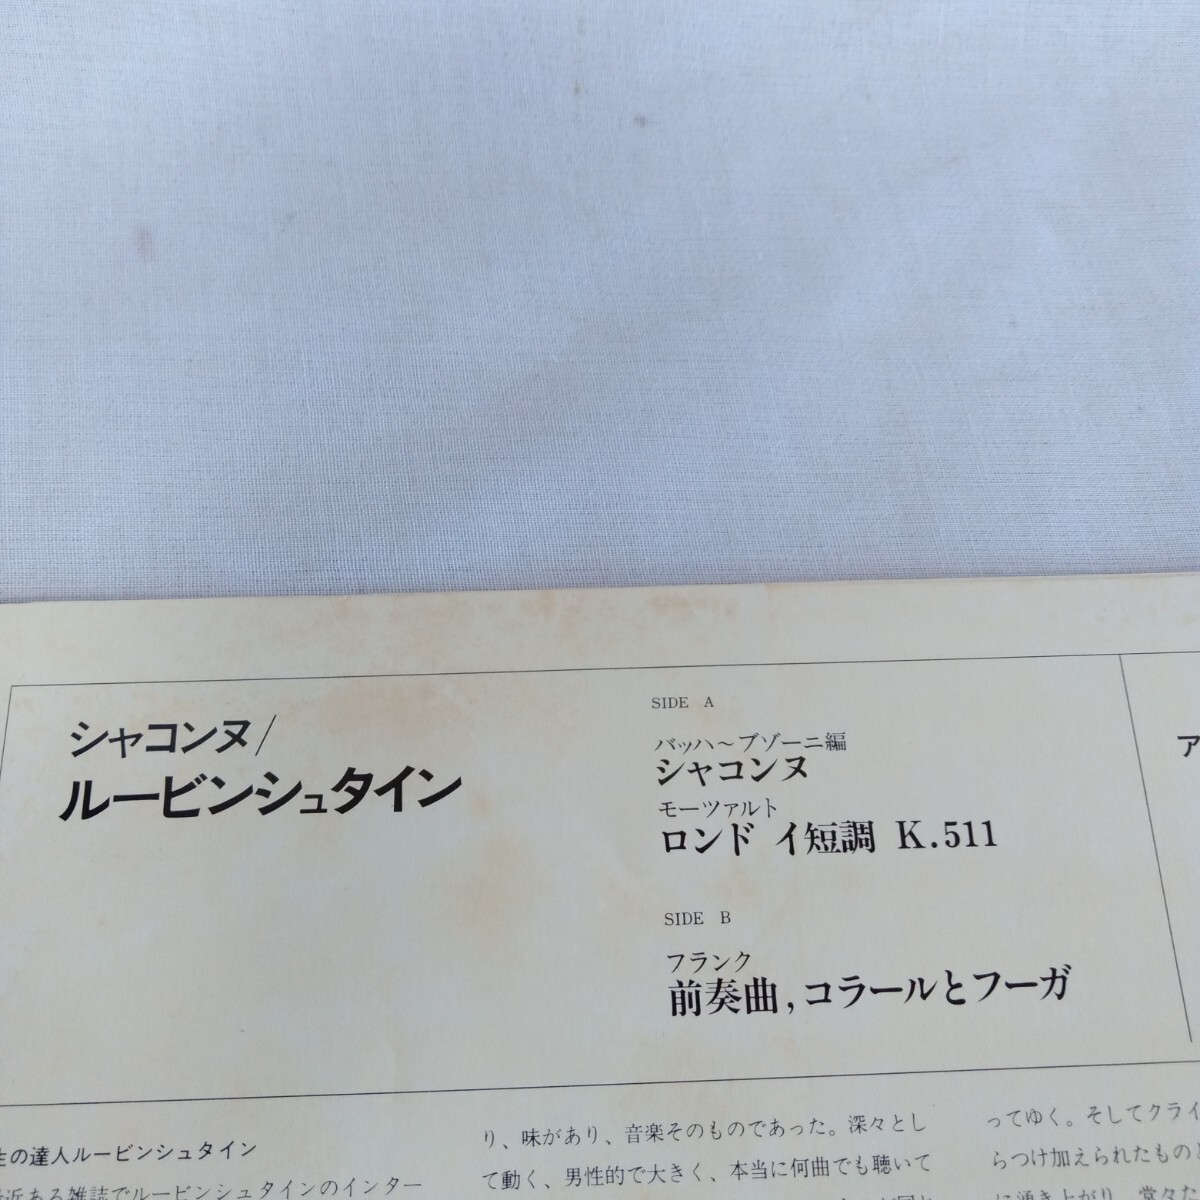 シャコンヌ/
ルービンシュタイン
SIDE A
バッハ〜ブゾーニ編
シャコンヌ
モーツァルト
ロンド イ短調 K.511
SIDE B
フランク
前奏曲, コラールとフーガ
ア
の達人ルービンシュタイン
近ある雑誌でルービンシュタインのインター
り、味があり、音楽そのものであった。深々とし
て動く、男性的で大きく、本当に何曲でも聴いて
ってゆく。そしてクライ
らつけ加えられたものと
に湧き上がり、堂々た